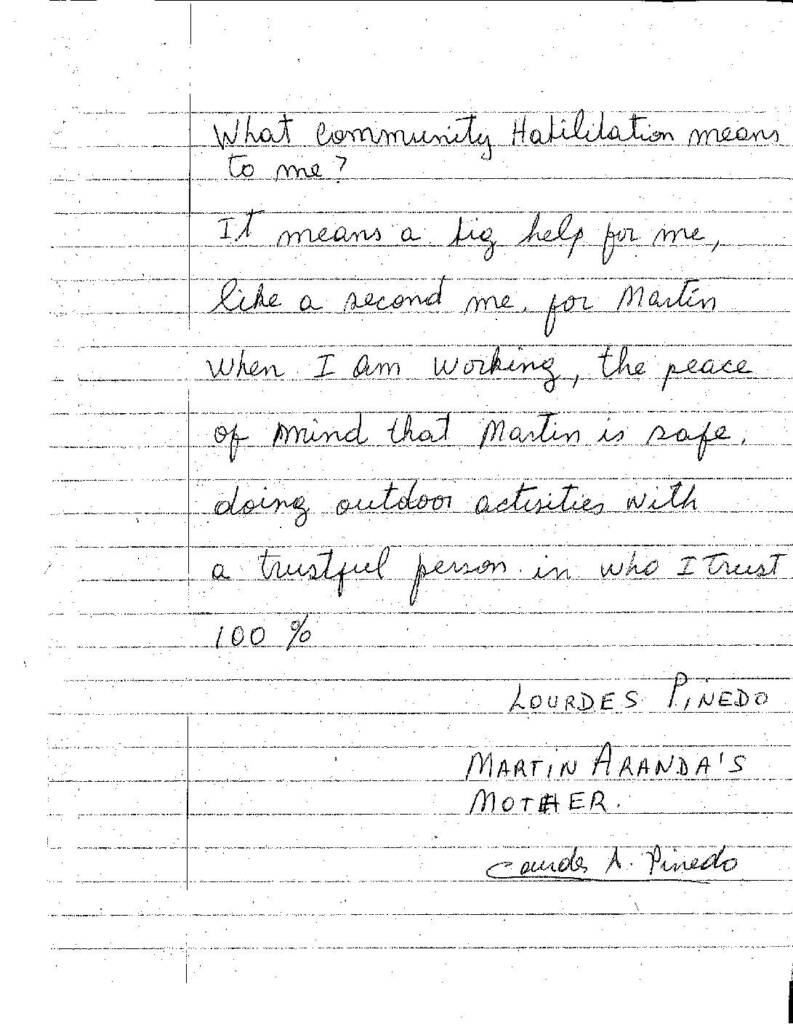 What Community Habilitation means
to me?
It means a big help for me,
like a second me. for Martin
when I am working, the peace
of mind that Martin is safe.
doing outdoor activities with
a trustful person in who I trust
100 %
LOURDES PINEDO
MARTIN ARANDA'S
MOTHER.
Lourdes A. Pinedo